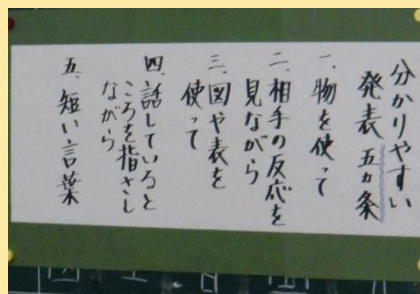 分かりやすい
発表 五ヵ条
一、物を使って
二、相手の反応を
見ながら
三、図や表を
使って
四、話していると
ころを指さし
ながら
五、短い言葉